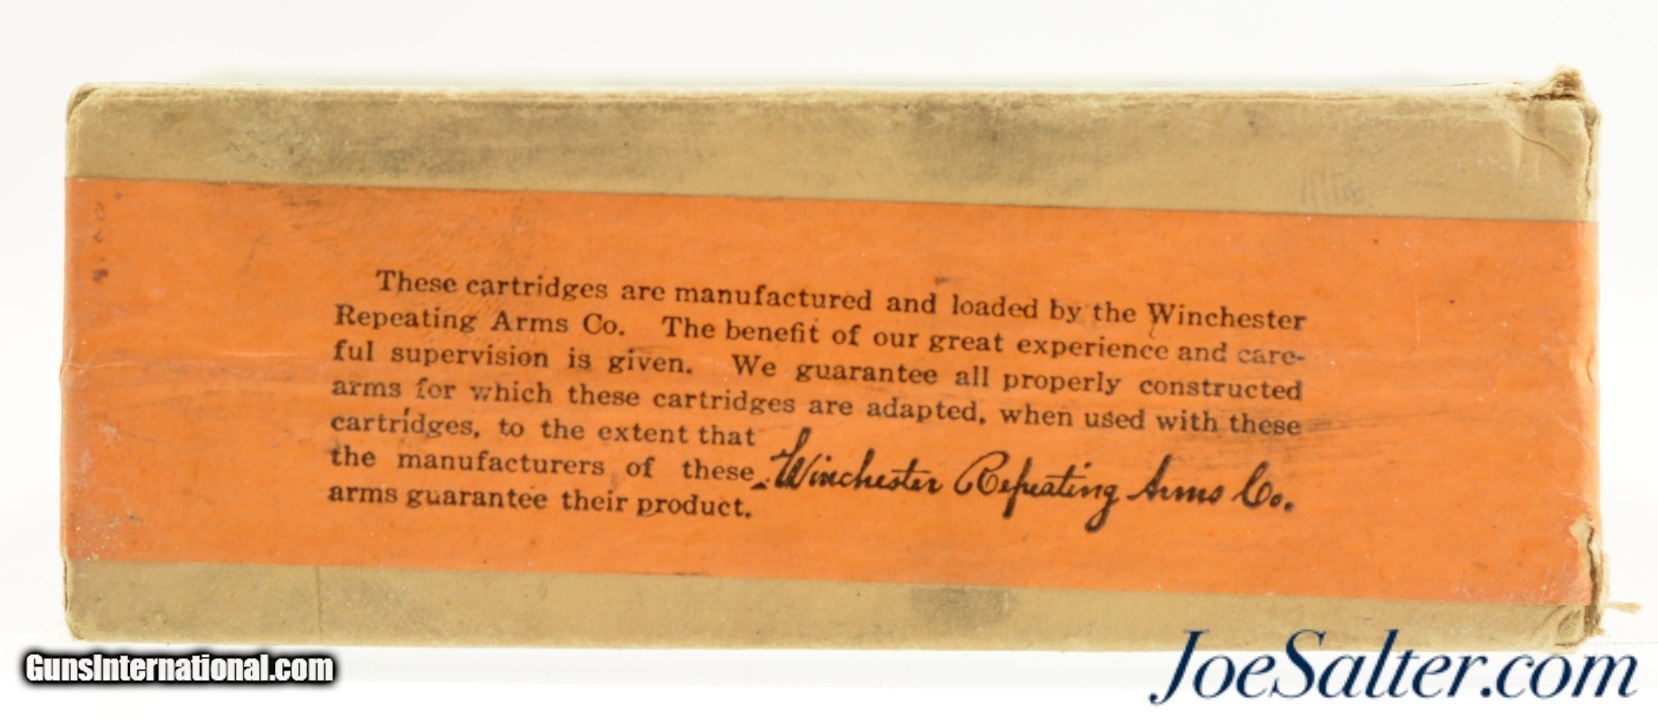 These cartridges are manufactured and loaded by the Winchester
Repeating Arms Co. The benefit of our great experience and care-
ful supervision is given. We guarantee all properly constructed
arms for which these cartridges are adapted, when used with these
cartridges, to the extent that
the manufacturers of these
arms guarantee their product.
Winchester Repeating Arms Co.
GunsInternational.com
JoeSalter.com